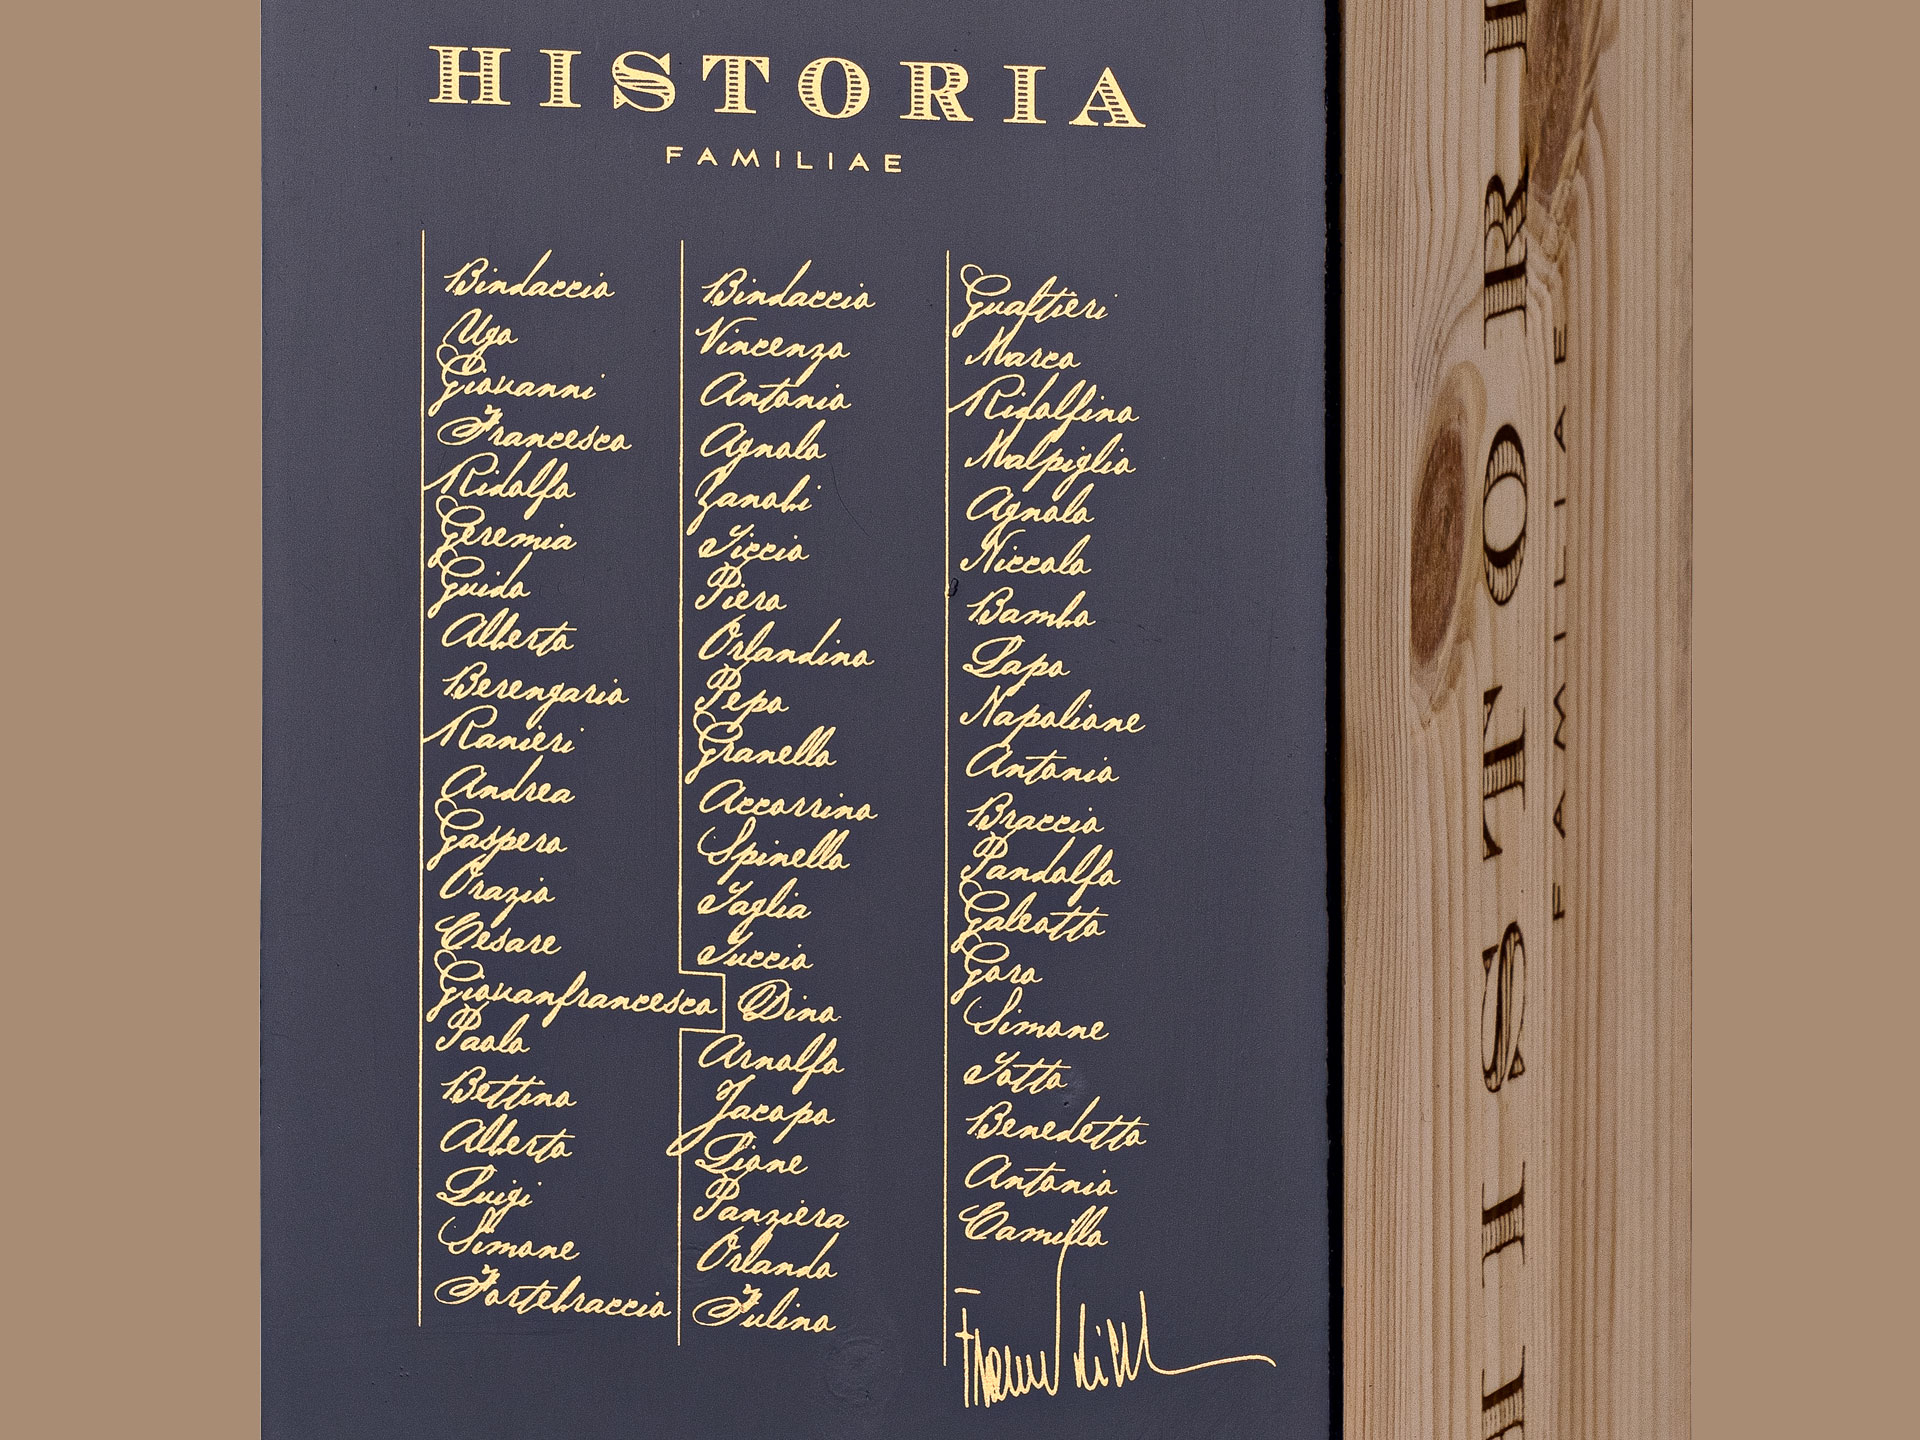 HISTORIA
FAMILIAE
Bindaccio
Ugo
Giovanni
Francesco
Ridolfo
Geremia
Guido
Alberto
Berengario
Ranieri
Andrea
Gaspero
Orazio
Cesare
Giovanfrancesco
Paolo
Bettino
Alberto
Luigi
Simone
Fortebraccio
Bindaccio
Vincenzo
Antonio
Agnolo
Zanobi
Ticcio
Piero
Orlandino
Pepo
Granello
Accorrino
Spinello
Taglia
Tuccio
Dino
Arnolfo
Jacopo
Lione
Panziera
Orlando
Fulino
Gualtieri
Marco
Ridolfino
Malpiglio
Agnolo
Niccolo
Bambo
Lapo
Napolione
Antonio
Braccio
Pandolfo
Galeotto
Goro
Simone
Totto
Benedetto
Antonio
Camillo
HISTORI
FAMILIAE